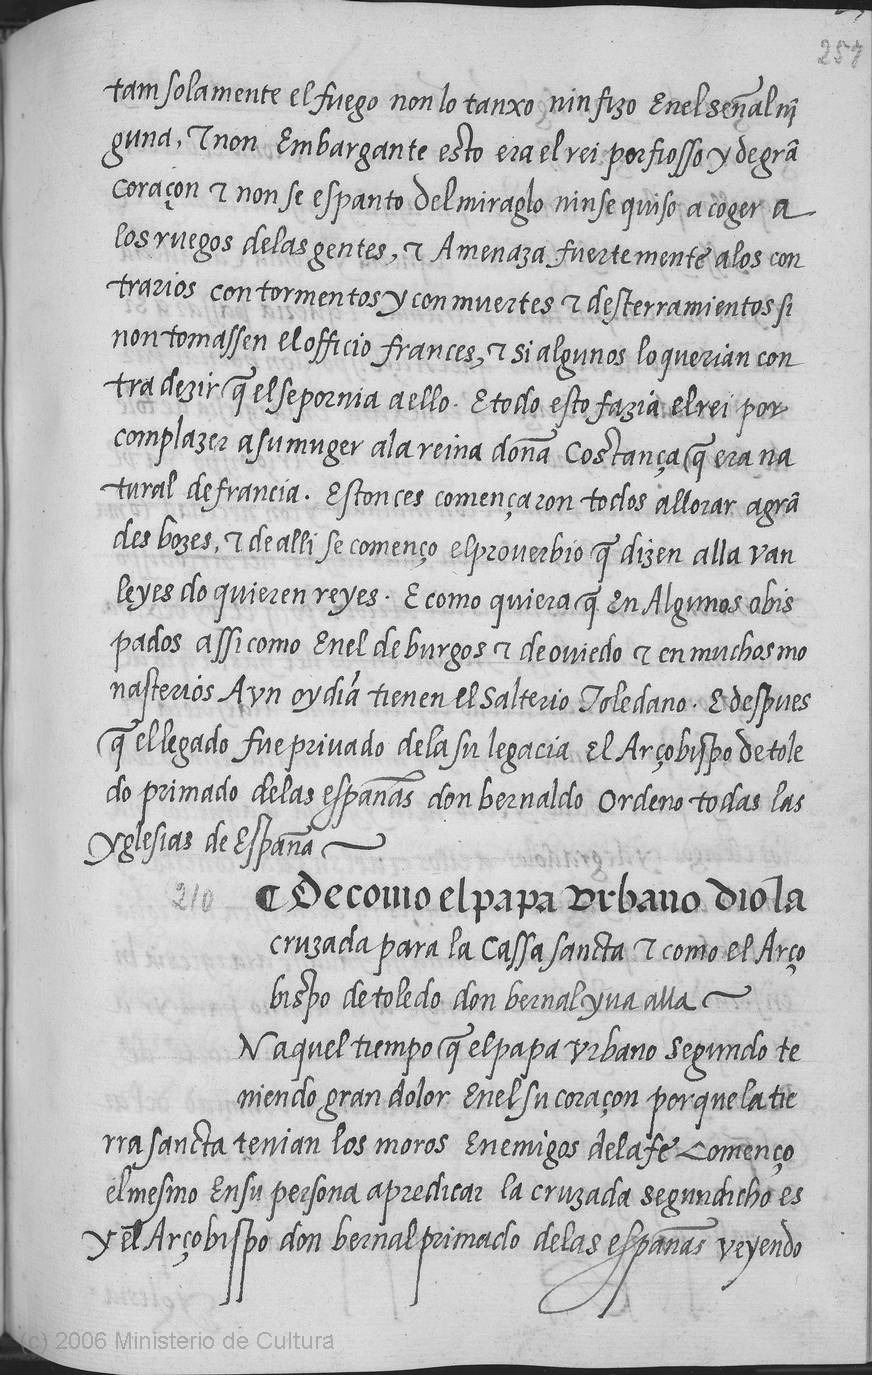 257
tam solamente el fuego non lo tanxo nin fizo Enel señal nĩ
guna, ⁊ non Embargante esto era el rei porfiosso y de grã
coraçon ⁊ non se espanto del miraglo nin se quiso acoger a
los ruegos delas gentes, ⁊ Amenaza fuertemente alos con
trarios con tormentos y con muertes ⁊ desterramientos si
non tomassen el officio frances, ⁊ si algunos lo querian con
tradezir q̃ el se pornia a ello. E todo esto fazia el rei por
complazer a su muger ala reina doña Costança q̃ era na
tural de francia. Estonces començaron todos allorar a grã
des bozes, ⁊ de alli se començo el proverbio q̃ dizen alla van
leyes do quieren reyes. E como quiera q̃ En Algunos obis
pados assi como Enel de burgos ⁊ de oviedo ⁊ en muchos mo
nasterios Ayn oy dia tienen el Salterio Toledano. E despues
q̃ el legado fue privado dela su legacia El Arçobispo de tole
do primado delas españas don bernaldo Ordeno todas las
Yglesias de España
210 ¶ De como el papa Vrbano dio la
cruzada para la Cassa sancta ⁊ como el Arço
bispo de toledo don bernal yua alla
N aquel tiempo q̃ el papa Vrbano segundo te
niendo gran dolor Enel su coraçon porque la tie
rra sancta tenian los moros Enemigos dela fe Començo
el mesmo En su persona a predicar la cruzada segun dicho es
Y el Arçobispo don bernal primado delas españas veyendo
(c) 2006 Ministerio de Cultura